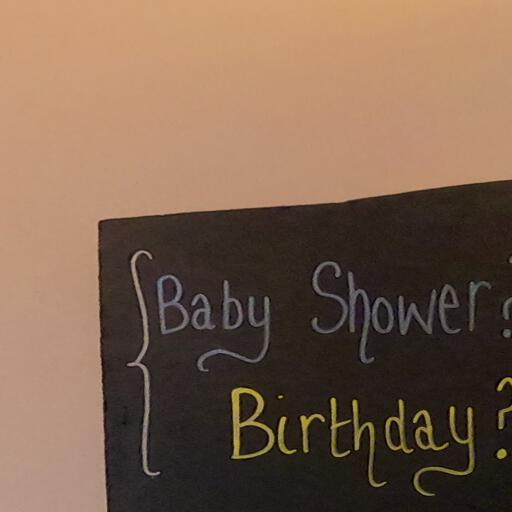 {Baby Shower?
Birthday?